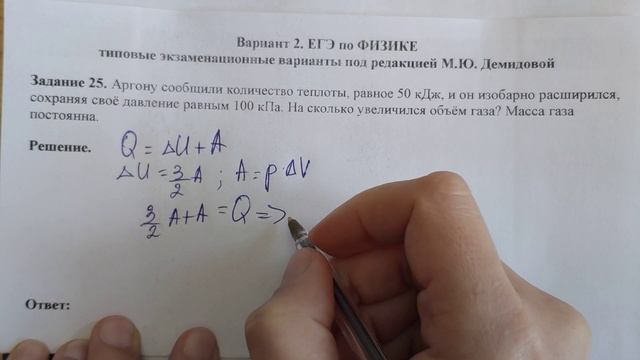 Вариант 2. ЕГЭ по ФИЗИКЕ
типовые экзаменационные варианты под редакцией М.Ю. Демидовой
Задание 25. Аргону сообщили количество теплоты, равное 50 кДж, и он изобарно расширился,
сохраняя своё давление равным 100 кПа. На сколько увеличился объём газа? Масса газа
постоянна.
Решение. Q = ΔU + A
ΔU = 3/2 A ; A = p·ΔV
3/2 A + A = Q =>
Ответ: